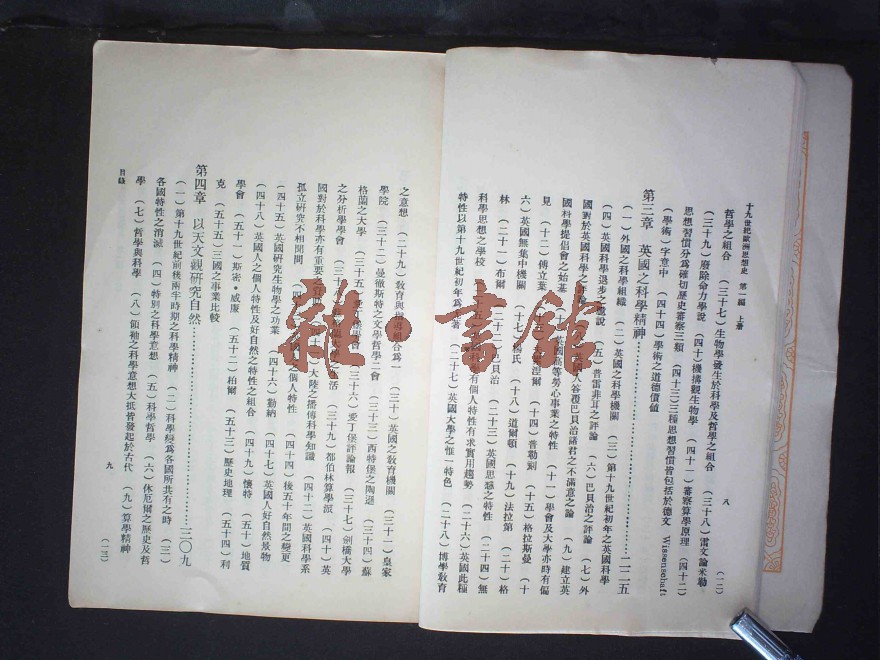 十九世紀歐洲思想史 第一編 上册
八
(一二)
哲學之組合 (三十七)生物學發生於科學及哲學之組合 (三十八)雷文論米勒
(三十九)廢除命力學說 (四十)機構觀生物學 (四十一)審察算學原理 (四十二)
思想習慣分為確切歷史審察三類 (四十三)三種思想習慣皆包括於德文 Wissenschaft
(學術)字意中 (四十四)學術之道德價値
第三章 英國之科學精神 二二五
(一)外國之科學組織 (二)英國之科學機關 (三)第十九世紀初年之英國科學
(四)英國科學退步之 說 (五)普雷非耳之評論 (六)巴貝治之評論 (七)外
國對於英國科學之評論 英國人答覆巴貝治諸君之不滿意之論 (九)建立英
國科學提倡會之始基 英國 等勞心事業之特性 (十一)學會及大學亦時有偏
見 (十二)傅立葉 涅爾 (十四)普勒刻 (十五)格拉斯曼 (十
六)英國無集中機關 (十七)楊氏 (十八)道爾頓 (十九)法拉第 (二十)格
林 (二十一)布爾 巴貝治 (二十三)英國思想之特性 (二十四)無
科學思想之學校 有個人特性有求實用趨勢 (二十六)英國此種
特性以第十九世紀初年為 著 (二十七)英國大學之惟一特色 (二十八)博學敎育
之意想 (二十九)敎育與 組合爲一 (三十)英國之敎育機關 (三十一)皇家
學院 (三十二)曼徹斯特之文學哲學二會 (三十三)西特堡之陶遜 (三十四)蘇
格蘭之大學 (三十五) (三十六)愛丁堡評論報 (三十七)劍橋大學
之分析學學會 活 (三十九)都伯林算學派 (四十)英
國對於科學亦有重要之 大陸之播傳科學知識 (四十二)英國科學系
孤立硏究不相聞問 之個人特性 (四十四)後五十年間之變更
(四十五)英國硏究生物學之功業 (四十六)勤納 (四十七)英國人好自然景物
(四十八)英國人之個人特性及好自然之特性之組合 (四十九)懷特 (五十)地質
學會 (五十一)斯密•威廉 (五十二)柏爾 (五十三)歷史地理 (五十四)利
克 (五十五)三國之事業比較
第四章 以天文觀硏究自然 三〇九
(一)第十九世紀前後兩半時期之科學精神 (二)科學變爲各國所共有之時 (三)
各國特性之消滅 (四)特別之科學意想 (五)科學哲學 (六)休厄爾之歷史及哲
學 (七)哲學與科學 (八)領袖之科學意想大抵皆發起於古代 (九)算學精神
目錄
九
(一三)
雜·書館